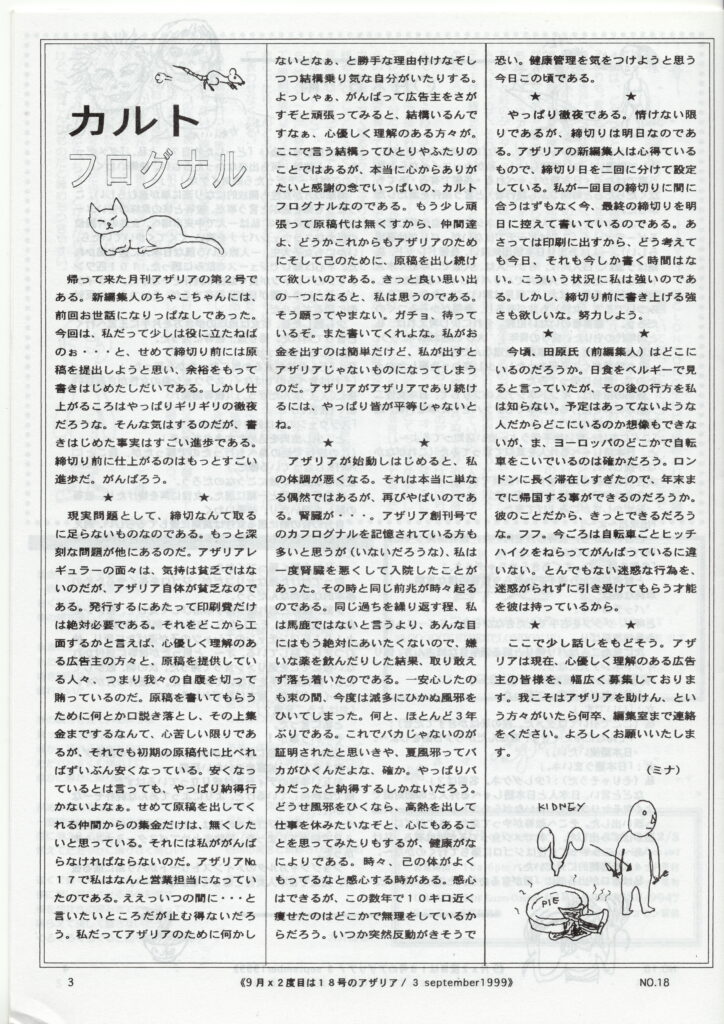 カルト
フログナル
　帰って来た月刊アザリアの第２号で
ある。新編集人のちゃこちゃんには、
前回お世話になりっぱなしであった。
今回は、私だって少しは役に立たねば
のぉ・・・と、せめて締切り前には原
稿を提出しようと思い、余裕をもって
書きはじめたしだいである。しかし仕
上がるころはやっぱりギリギリの徹夜
だろうな。そんな気はするのだが、書
きはじめた事実はすごい進歩である。
締切り前に仕上がるのはもっとすごい
進歩だ。がんばろう。
★　★
　現実問題として、締切なんて取る
に足らないものなのである。もっと深
刻な問題が他にあるのだ。アザリアレ
ギュラーの面々は、気持は貧乏ではな
いのだが、アザリア自体が貧乏なので
ある。発行するにあたって印刷費だけ
は絶対必要である。それをどこから工
面するかと言えば、心優しく理解のあ
る広告主の方々と、原稿を提供してい
る人々、つまり我々の自腹を切って
賄っているのだ。原稿を書いてもらう
ために何とか口説き落とし、その上集
金までするなんて、心苦しい限りであ
るが、それでも初期の原稿代に比べれ
ばずいぶん安くなっている。安くなっ
ているとは言っても、やっぱり納得行
かないよなぁ。せめて原稿を出してく
れる仲間からの集金だけは、無くした
いと思っている。それには私ががんば
らなければならないのだ。アザリア№
１７で私はなんと営業担当になってい
たのである。ええっいつの間に・・・と
言いたいところだが止む得ないだろ
う。私だってアザリアのために何かし
ないとなぁ、と勝手な理由付けなぞし
つつ結構乗り気な自分がいたりする。
よっしゃぁ、がんばって広告主をさが
すぞと頑張ってみると、結構いるんで
すなぁ、心優しく理解のある方々が。
ここで言う結構ってひとりやふたりの
ことではあるが、本当に心からありが
たいと感謝の念でいっぱいの、カルト
フログナルなのである。もう少し頑
張って原稿代は無くすから、仲間達
よ、どうかこれからもアザリアのため
にそして己のために、原稿を出し続け
て欲しいのである。きっと良い思い出
の一つになると、私は思うのである。
そう願ってやまない。ガチョ、待って
いるぞ。また書いてくれよな。私がお
金を出すのは簡単だけど、私が出すと
アザリアじゃないものになってしまう
のだ。アザリアがアザリアであり続け
るには、やっぱり皆が平等じゃないと
ね。
★　★
　アザリアが始動しはじめると、私
の体調が悪くなる。それは本当に単な
る偶然ではあるが、再びやばいのであ
る。腎臓が・・・。アザリア創刊号で
のカフログナルを記憶されている方も
多いと思うが（いないだろうな）、私は
一度腎臓を悪くして入院したことが
あった。その時と同じ前兆が時々起る
のである。同じ過ちを繰り返す程、私
は馬鹿ではないと言うより、あんな目
にはもう絶対にあいたくないので、嫌
いな薬を飲んだりした結果、取り敢え
ず落ち着いたのである。一安心したの
も束の間、今度は滅多にひかぬ風邪を
ひいてしまった。何と、ほとんど３年
ぶりである。これでバカじゃないのが
証明されたと思いきや、夏風邪ってバ
カがひくんだよな、確か。やっぱりバ
カだったと納得するしかないだろう。
どうせ風邪をひくなら、高熱を出して
仕事を休みたいなぞと、心にもあるこ
とを思ってみたりもするが、健康がな
によりである。時々、己の体がよく
もってるなと感心する時がある。感心
はできるが、この数年で１０キロ近く
痩せたのはどこかで無理をしているか
らだろう。いつか突然反動がきそうで
恐い。健康管理を気をつけようと思う
今日この頃である。
★　★
　やっぱり徹夜である。情けない限
りであるが、締切りは明日なのであ
る。アザリアの新編集人は心得ている
もので、締切り日を二回に分けて設定
している。私が一回目の締切りに間に
合うはずもなく今、最終の締切りを明
日に控えて書いているのである。あ
さっては印刷に出すから、どう考えて
も今日、それも今しか書く時間はな
い。こういう状況に私は強いのであ
る。しかし、締切り前に書き上げる強
さも欲しいな。努力しよう。
★　★
　今頃、田原氏（前編集人）はどこに
いるのだろうか。日食をベルギーで見
ると言っていたが、その後の行方を私
は知らない。予定はあってないような
人だからどこにいるのか想像もできな
いが、ま、ヨーロッパのどこかで自転
車をこいでいるのは確かだろう。ロン
ドンに長く滞在しすぎたので、年末ま
でに帰国する事ができるのだろうか。
彼のことだから、きっとできるだろう
な。フフ。今ごろは自転車ごとヒッチ
ハイクをねらってがんばっているに違
いない。とんでもない迷惑な行為を、
迷惑がられずに引き受けてもらう才能
を彼は持っているから。
★　★
　ここで少し話しをもどそう。アザ
リアは現在、心優しく理解のある広告
主の皆様を、幅広く募集しておりま
す。我こそはアザリアを助けん、とい
う方々がいたら何卒、編集室まで連絡
をください。よろしくお願いいたしま
す。
（ミナ）
KIDNEY
PIE
3
《９月ｘ２度目は１８号のアザリア / 3 september1999》
NO.18